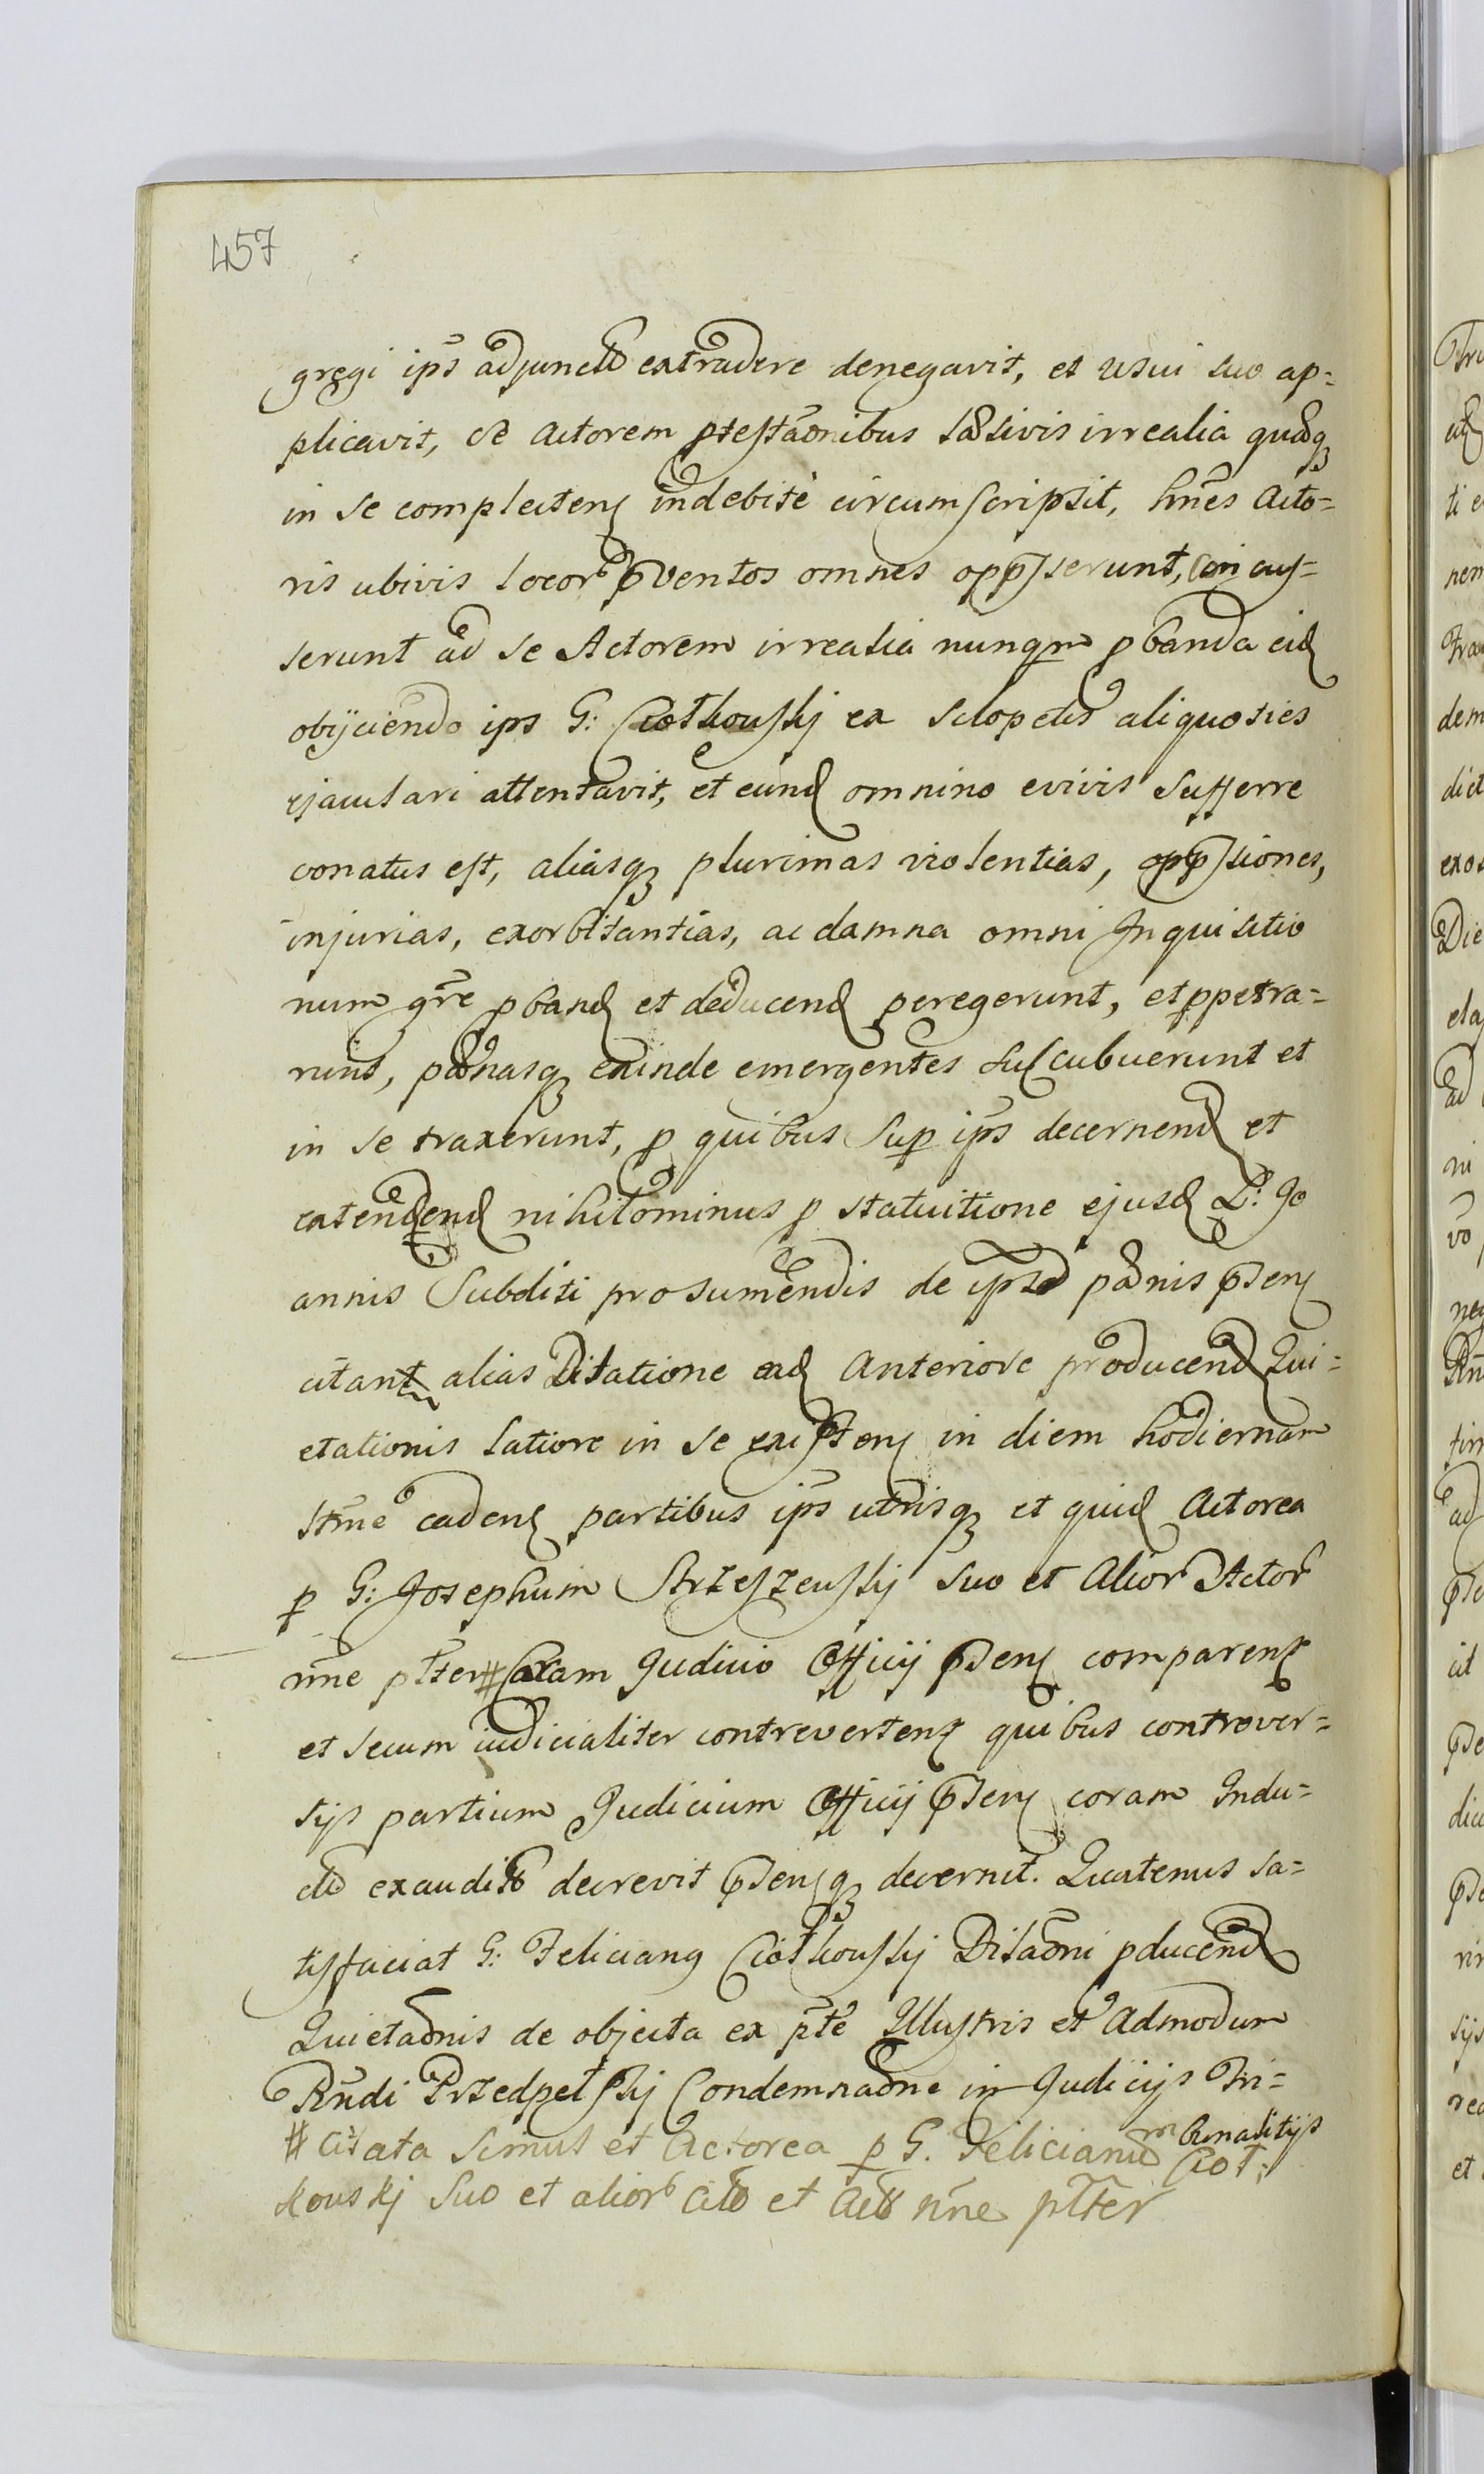 457
gregi ips adjuncto extradere denegavit, et usui suo ap=
plicavit, Actorem ptestaonibus irrealia quoq
in se complecten indebite circumscripsit, hnes Acto=
ris ubivis locor pventos omnes oppserunt, Concus=
serunt ad se Actorem irrealia nunqm pbanda eid
obijciendo ips G: Ciotkouskj ex sclopetis aliquoties
ejaculari attentavit, et eund omnino evivis sufferre
conatus est, aliasq plurimas violentias, oppsiones,
injurias, exorbitantias, ac damna omni Inquisitio
num gre pband et deducend peregerunt, et ppetra=
runt, paenasq exinde emergentes succubuerunt et
in se traxerunt, p quibus sup ips decernend et
extendend nihilominus p statuitione ejusd L: Jo
annis Subditi pro sumendis de ipso paenis psen
citant alias Dilatione ead Anteriore producend Qui=
etationis latiore in se existen in diem hodiernam
stme caden partibus ips utrisq et quid Actorea
p G: Josephum Strzeszeuskj suo et Alior Actor
nne ptter # Coram Judicio Officij psen comparent
et secum iudicialiter controvertent quibus controver=
sijs partium Judicium Officij psen coram Indu=
cto exaudito decrevit psenq decernit. Quatenus sa=
tisfaciat G: Felician Ciotkouskj Dilaoni pducend
Quietaonis de objecta ex pte Illustris et Admodum
Rndi Przedpelskj Condemnaone in Judicijs Tri=
bunalitijs
# Citata simul et Actorea p G. Felicianum Ciot=
kouskj suo et alior Cito et Acto nne ptter